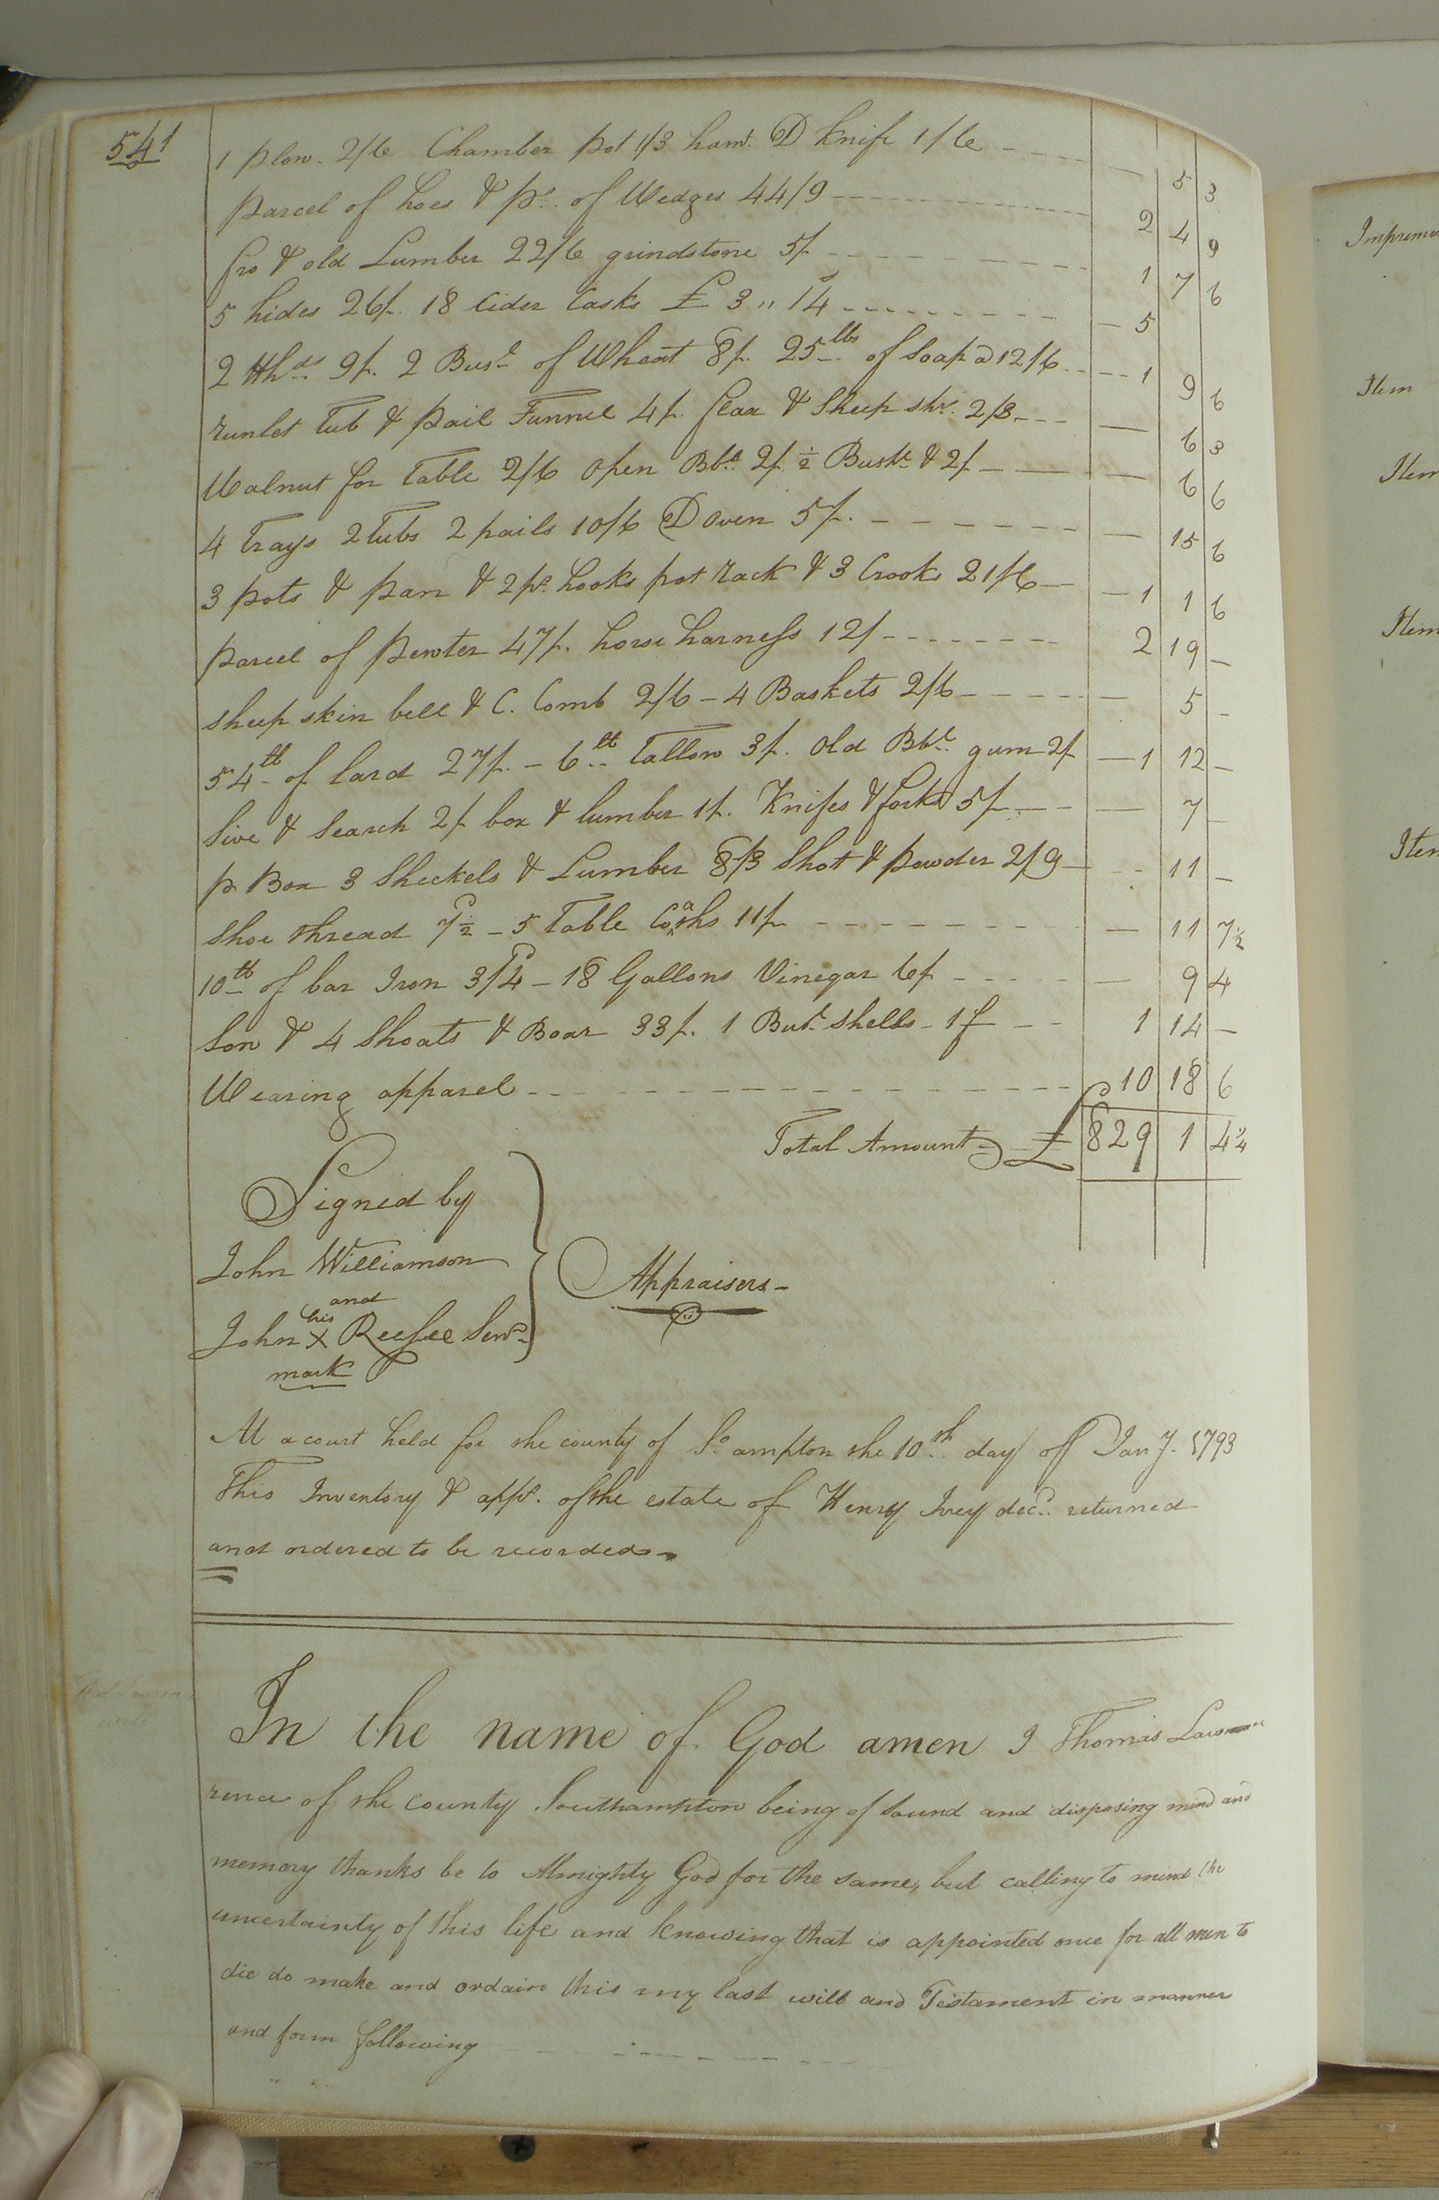 541
1 plow. 2/6 Chamber pot 1/3 ham.r D knife 1/6 5 3
parcel of hoes & p.r of Wedges 44/9 2 4 9
fro & old Lumber 22/6 grindstone 5/ 1 7 6
5 hides 26/. 18 Cider Casks £ 3 " 14 5
2 Hhds 9/. 2 Bus.l of Wheat 8/. 25 lbs of Soap @ 12/6 1 9 6
runlet tub & pail Funnel 4/. flax & Sheep shr. 2/3 6 3
Walnut for table 2/6 open Bbl 2/. ½ Bush.l & 2/ 6 6
4 trays 2 tubs 2 pails 10/6 D oven 5/. 15 6
3 pots & pan & 2 pr. hooks pot rack & 3 Crooks 21/6 1 1 6
parcel of pewter 47/. horse harness 12/ 2 19
sheep skin bell & C. Comb 2/6 - 4 Baskets 2/6 5
54 lb of lard 27/. - 6 lb tallow 3/. old Bbl gum 2/ 1 12
Sive & Search 2/ box & lumber 1/. Knifes & forks 5/ 7
p. Box 3 Sheckels & Lumber 8/3 Shot & powder 2/9 11
Shoe thread 7½ - 5 table Coaths 11/ 11 7½
10 lb of bar Iron 3/4 - 18 Gallons Vinegar 6/ 9 4
Sow & 4 Shoats & Boar 33/. 1 But. shells - 1/ 1 14
Wearing apparel 10 18 6
Total Amount £ 829 1 4¼
Signed by
John Williamson
and
his
John X Reefee Senr.
mark
Appraisers
At a court held for the county of So.ampton the 10.th day of Jany. 1793
This Inventory & appt. of the estate of Henry Ivey dec.d returned
and ordered to be recorded
In the name of God amen I Thomas Law
rence of the county Southampton being of sound and disposing mind and
memory thanks be to Almighty God for the same, but calling to mind the
uncertainty of this life and knowing that is appointed once for all men to
die do make and ordain this my last will and Testament in manner
and form following
Item
Item